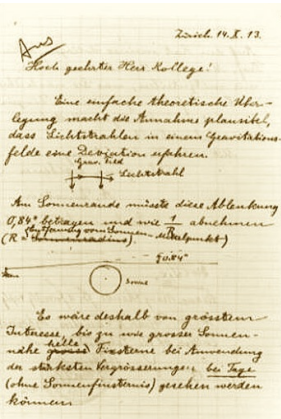 Zürich. 14. X. 13.
Hoch geehrter Herr Kollege!
Eine einfache theoretische Über-
legung macht die Annahme plausibel,
dass Lichtstrahlen in einem Gravitations-
felde eine Deviation erfahren.
Grav. Feld
Lichtstrahl
Am Sonnenrande müsste diese Ablenkung
0,84" betragen und wie 1/R abnehmen
(R = Sonnenradius) Entfernung vom Sonnen-Mittelpunkt)
0.84"
Sonne
Es wäre deshalb von grösstem
Interesse, bis zu wie grosser Sonnen-
nähe grosse helle Fixsterne bei Anwendung
der stärksten Vergrösserungen bei Tage
(ohne Sonnenfinsternis) gesehen werden
können.